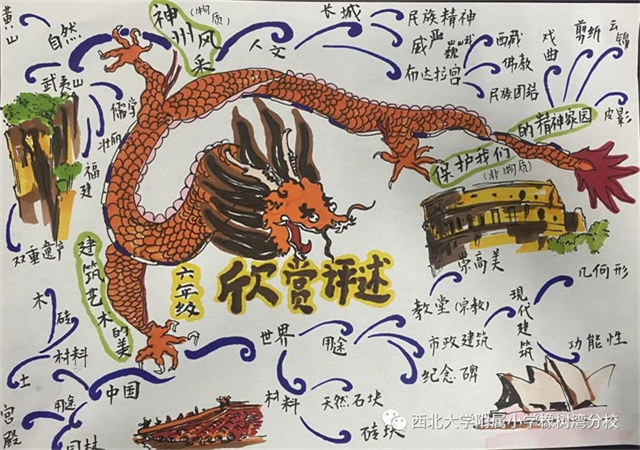 黄山
自然
神州风采
(物质)
人文
长城
民族精神
威严
巍峨
布达拉宫
西藏
佛教
民族团结
戏曲
剪纸
云锦
皮影
保护我们的精神家园
(非物质)
武夷山
儒学
壮丽
福建
双重遗产
建筑艺术的美
六年级
欣赏评述
崇高美
几何形
教堂(宗教)
市政建筑
纪念碑
现代建筑
功能性
世界
用途
材料
天然石块
砖块
中国
木
砖
土
材料
用途
宫殿
园林
西北大学附属小学橡树湾分校